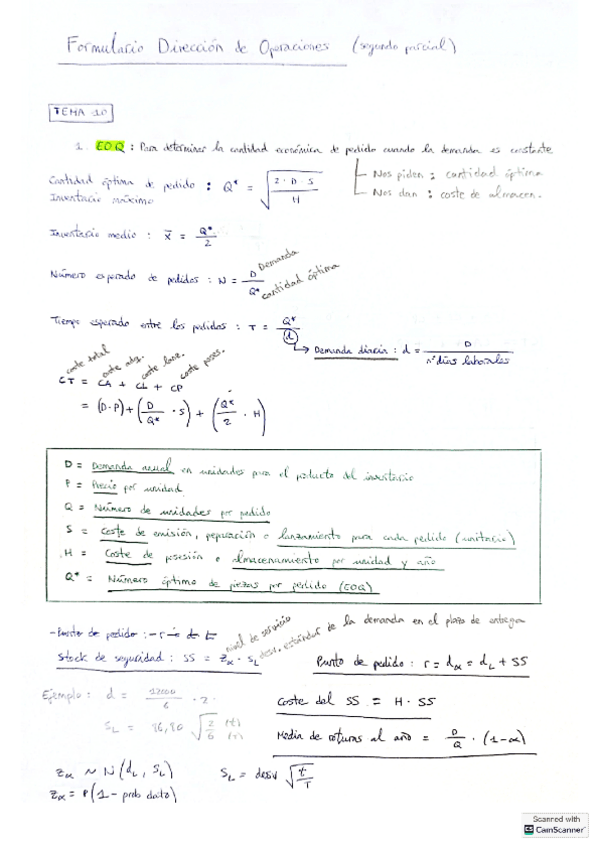 Formulario Dirección de Operaciones (segundo parcial)
TEMA 10
1. EOQ : Para determinar la cantidad económica de pedido cuando la demanda es constante
Nos piden : cantidad óptima
Nos dan : coste de almacen.
Cantidad óptima de pedido : Q* = √(2·D·S / H)
Inventario máximo
Inventario medio : x̄ = Q*/2
Número esperado de pedidos : N = D/Q*
Demanda
cantidad óptima
Tiempo esperado entre los pedidos : T = Q*/d
Demanda diaria : d = D / nº días laborales
coste total coste adq. coste lanz. coste poses.
CT = CA + CL + CP
= (D·P) + (D/Q* · S) + (Q*/2 · H)
D = Demanda anual en unidades para el producto del inventario
P = Precio por unidad
Q = Número de unidades por pedido
S = Coste de emisión, preparación o lanzamiento para cada pedido (unitario)
H = Coste de posesión o almacenamiento por unidad y año
Q* = Número óptimo de piezas por pedido (EOQ)
- Punto de pedido :
nivel de servicio
desv. estándar de la demanda en el plazo de entrega
Stock de seguridad : SS = zα · SL
Punto de pedido : r = dα = dL + SS
Ejemplo : d = 12000/6 · 2
Coste del SS = H · SS
SL = 86,80 √(2/6) (t) (T)
Media de roturas al año = D/Q · (1-α)
zα ~ N(dL, SL)
SL = desv √(t/T)
zα = P(1 - prob dato)
Scanned with
CamScanner